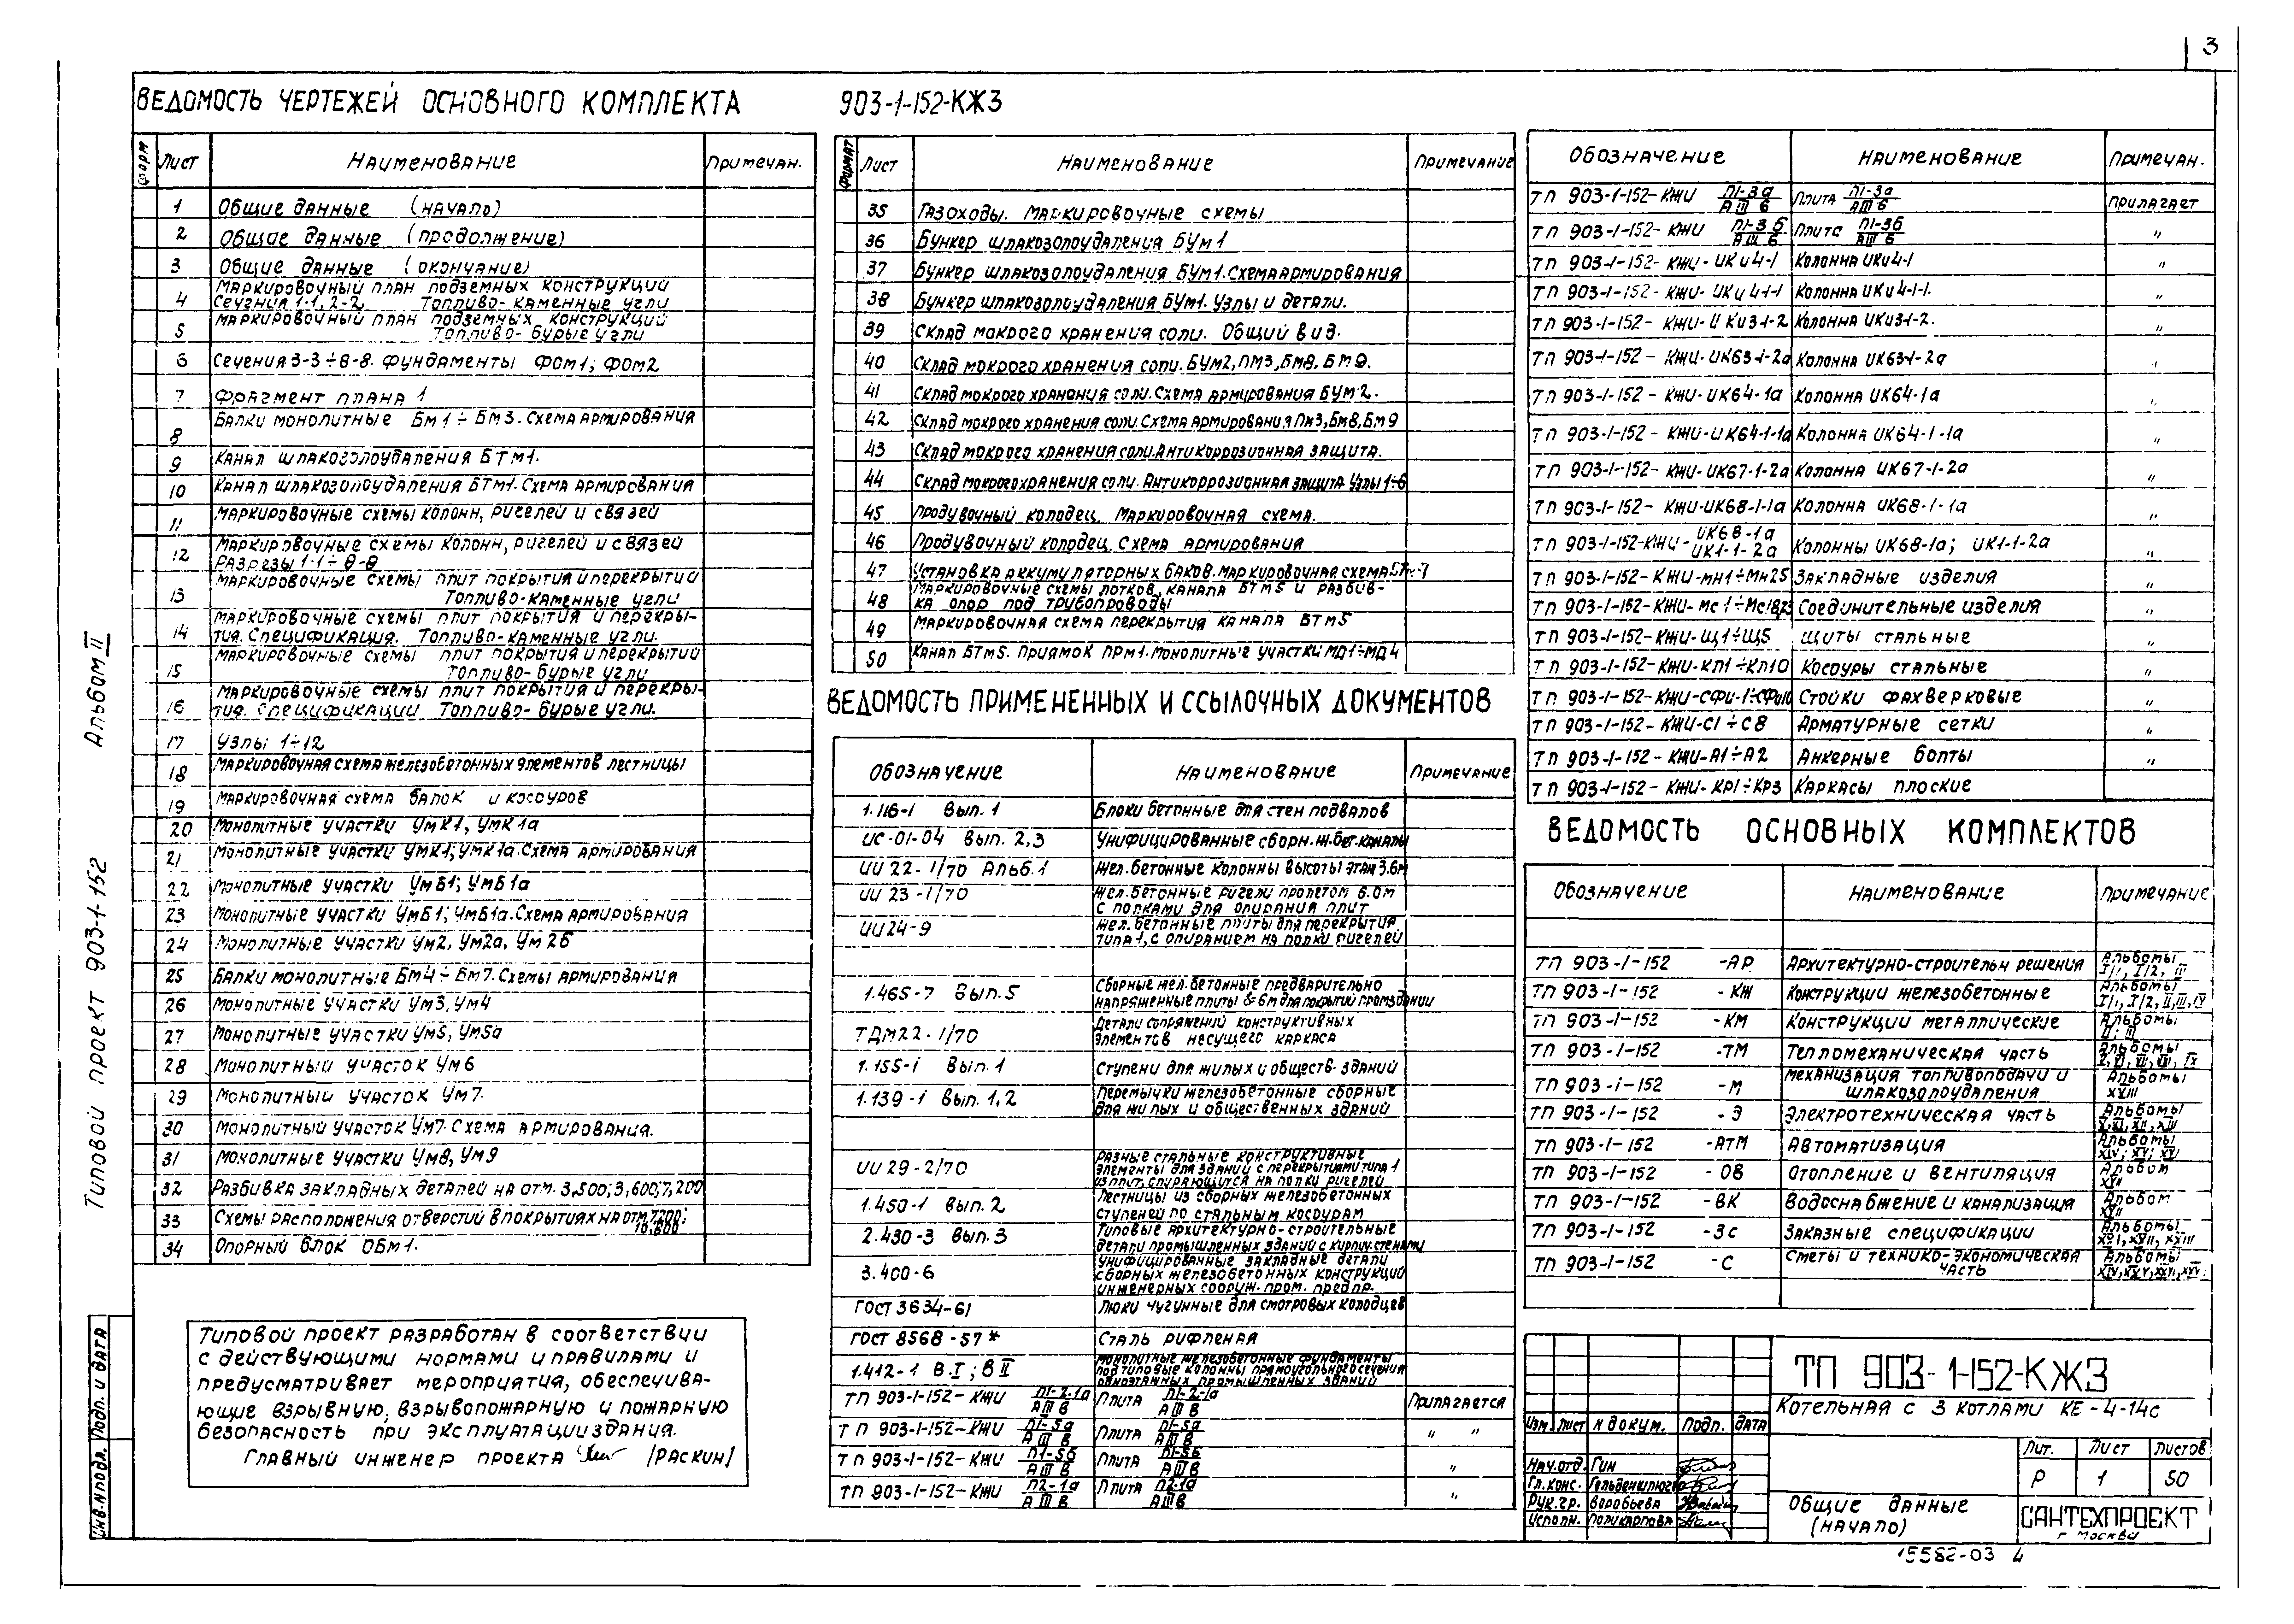 3
ВЕДОМОСТЬ ЧЕРТЕЖЕЙ ОСНОВНОГО КОМПЛЕКТА 903-1-152-КЖ3
ФОРМ Лист Наименование Примечан.
1 Общие данные (начало)
2 Общие данные (продолжение)
3 Общие данные (окончание)
4 Маркировочный план подземных конструкций
Сечения 1-1, 2-2, Топливо-каменные угли
5 Маркировочный план подземных конструкций
Топливо-бурые угли
6 Сечения 3-3÷8-8. Фундаменты ФОм1; ФОм2
7 Фрагмент плана 1
8 Балки монолитные Бм1÷Бм3. Схема армирования
9 Канал шлакозолоудаления БТм1.
10 Канал шлакозолоудаления БТм1. Схема армирования
11 Маркировочные схемы колонн, ригелей и связей
12 Маркировочные схемы колонн, ригелей и связей
Разрезы 1-1÷8-8
13 Маркировочные схемы плит покрытия и перекрытий
Топливо-каменные угли
14 Маркировочные схемы плит покрытия и перекры-
тия. Спецификация. Топливо-каменные угли.
15 Маркировочные схемы плит покрытия и перекрытий
Топливо-бурые угли
16 Маркировочные схемы плит покрытия и перекры-
тия. Спецификации Топливо-бурые угли.
17 Узлы 1÷12
18 Маркировочная схема железобетонных элементов лестницы
19 Маркировочная схема балок и косоуров
20 Монолитные участки УмК1, УмК1а
21 Монолитные участки УмК1; УмК1а. Схема армирования
22 Монолитные участки УмБ1; УмБ1а
23 Монолитные участки УмБ1; УмБ1а. Схема армирования
24 Монолитные участки Ум2, Ум2а, Ум2б
25 Балки монолитные Бм4÷Бм7. Схемы армирования
26 Монолитные участки Ум3, Ум4
27 Монолитные участки Ум5, Ум5а
28 Монолитный участок Ум6
29 Монолитный участок Ум7.
30 Монолитный участок Ум7. Схема армирования.
31 Монолитные участки Ум8, Ум9
32 Разбивка закладных деталей на отм. 3,500; 3,600; 7,200
33 Схемы расположения отверстий в покрытиях на отм. 7,200;
10,800
34 Опорный блок ОБм1.
ФОРМАТ Лист Наименование Примечание
35 Газоходы. Маркировочные схемы
36 Бункер шлакозолоудаления БУм1
37 Бункер шлакозолоудаления БУм1. Схема армирования
38 Бункер шлакозолоудаления БУм1. Узлы и детали.
39 Склад мокрого хранения соли. Общий вид.
40 Склад мокрого хранения соли. БУм2, Пм3, Бм8, Бм9.
41 Склад мокрого хранения соли. Схема армирования БУм2.
42 Склад мокрого хранения соли. Схема армирования Пм3, Бм8, Бм9
43 Склад мокрого хранения соли. Антикоррозионная защита.
44 Склад мокрого хранения соли. Антикоррозионная защита. Узлы 1÷6
45 Продувочный колодец. Маркировочная схема.
46 Продувочный колодец. Схема армирования
47 Установка аккумуляторных баков. Маркировочная схема
48 Маркировочные схемы лотков, канала БТм5 и разбив-
ка опор под трубопроводы
49 Маркировочная схема перекрытия канала БТм5
50 Канал БТм5. Приямок Прм1. Монолитные участки МД1÷МД4
ВЕДОМОСТЬ ПРИМЕНЕННЫХ И ССЫЛОЧНЫХ ДОКУМЕНТОВ
Обозначение Наименование Примечание
1.116-1 Вып. 1 Блоки бетонные для стен подвалов
ИС-01-04 Вып. 2,3 Унифицированные сборн. ж.бет. каналы
ИИ 22-1/70 Альб. 1 Жел. бетонные колонны высоты этаж 3.6м
ИИ 23-1/70 Жел. бетонные ригели пролетом 6.0м
с полками для опирания плит
ИИ 24-9 Жел. бетонные плиты для перекрытия
типа 1, с опиранием на полки ригелей
1.465-7 Вып. 5 Сборные жел. бетонные предварительно
напряженные плиты 6м для покрытий промзданий
ТДМ22-1/70 Детали сопряжений конструктивных
элементов несущего каркаса
1.155-1 Вып. 1 Ступени для жилых и обществ. зданий
1.139-1 Вып. 1,2 Перемычки железобетонные сборные
для жилых и общественных зданий
ИИ 29-2/70 Разные стальные конструктивные
элементы для зданий с перекрытиями типа 1
из плит, опирающихся на полки ригелей
1.450-1 Вып. 2 Лестницы из сборных железобетонных
ступеней по стальным косоурам
2.430-3 Вып. 3 Типовые архитектурно-строительные
детали промышленных зданий с кирпич. стенами
3.400-6 Унифицированные закладные детали
сборных железобетонных конструкций
инженерных сооруж. пром. предпр.
ГОСТ 3634-61 Люки чугунные для смотровых колодцев
ГОСТ 8568-57* Сталь рифленая
1.412-1 В.I; ВII Монолитные железобетонные фундаменты
под типовые колонны прямоугольного сечения
одноэтажных промышленных зданий
ТП 903-1-152-КЖИ П1-2-1а/АIIIв Плита П1-2-1а/АIIIв Прилагается
ТП 903-1-152-КЖИ П1-5а/АIIIв Плита П1-5а/АIIIв " "
ТП 903-1-152-КЖИ П1-5б/АIIIв Плита П1-5б/АIIIв "
ТП 903-1-152-КЖИ П2-1а/АIIIв Плита П2-1а/АIIIв "
Обозначение Наименование Примечан.
ТП 903-1-152-КЖИ П1-3а/АIIIб Плита П1-3а/АIIIб Прилагает
ТП 903-1-152-КЖИ П1-3б/АIIIб Плита П1-3б/АIIIб "
ТП 903-1-152-КЖИ-ИКи4-1 Колонна ИКи4-1 "
ТП 903-1-152-КЖИ-ИКи4-1-1 Колонна ИКи4-1-1. "
ТП 903-1-152-КЖИ-ИКи31-2 Колонна ИКи31-2. "
ТП 903-1-152-КЖИ-ИК63-1-2а Колонна ИК63-1-2а "
ТП 903-1-152-КЖИ-ИК64-1а Колонна ИК64-1а "
ТП 903-1-152-КЖИ-ИК64-1-1а Колонна ИК64-1-1а "
ТП 903-1-152-КЖИ-ИК67-1-2а Колонна ИК67-1-2а "
ТП 903-1-152-КЖИ-ИК68-1-1а Колонна ИК68-1-1а "
ТП 903-1-152-КЖИ-ИК68-1а ИК1-1-2а Колонны ИК68-1а; ИК1-1-2а "
ТП 903-1-152-КЖИ-МН1÷МН25 Закладные изделия "
ТП 903-1-152-КЖИ-Мс1÷Мс18,23 Соединительные изделия "
ТП 903-1-152-КЖИ-Щ1÷Щ5 Щиты стальные "
ТП 903-1-152-КЖИ-КЛ1÷КЛ10 Косоуры стальные "
ТП 903-1-152-КЖИ-СФи-1÷СФи10 Стойки фахверковые "
ТП 903-1-152-КЖИ-С1÷С8 Арматурные сетки "
ТП 903-1-152-КЖИ-А1÷А2 Анкерные болты "
ТП 903-1-152-КЖИ-КР1÷КР3 Каркасы плоские
ВЕДОМОСТЬ ОСНОВНЫХ КОМПЛЕКТОВ
Обозначение Наименование Примечание
ТП 903-1-152 -АР Архитектурно-строительн решения Альбомы
I/1, I/2, III
ТП 903-1-152 -КЖ Конструкции железобетонные Альбомы
I/1, I/2, II, III, IV
ТП 903-1-152 -КМ Конструкции металлические Альбомы
II; III
ТП 903-1-152 -ТМ Тепломеханическая часть Альбомы
ТП 903-1-152 -М Механизация топливоподачи и
шлакозолоудаления Альбомы
XVIII
ТП 903-1-152 -Э Электротехническая часть Альбомы
ТП 903-1-152 -АТМ Автоматизация Альбомы
ТП 903-1-152 -ОВ Отопление и вентиляция Альбом
ТП 903-1-152 -ВК Водоснабжение и канализация Альбом
ТП 903-1-152 -ЗС Заказные спецификации Альбомы
ТП 903-1-152 -С Сметы и технико-экономическая
часть Альбомы
Типовой проект разработан в соответствии
с действующими нормами и правилами и
предусматривает мероприятия, обеспечива-
ющие взрывную, взрывопожарную и пожарную
безопасность при эксплуатации здания.
Главный инженер проекта /Раскин/
Типовой проект 903-1-152 Альбом II
Инв.№подл. Подп. и дата
ТП 903-1-152-КЖ3
Котельная с 3 котлами КЕ-4-14с
Изм. Лист № докум. Подп. Дата
Нач.отд. Гин
Гл.конс.
Рук.гр. Воробьева
Исполн. Поликарпова
Лит. Лист Листов
Р 1 50
Общие данные
(начало)
САНТЕХПРОЕКТ
г Москва
15582-03 4